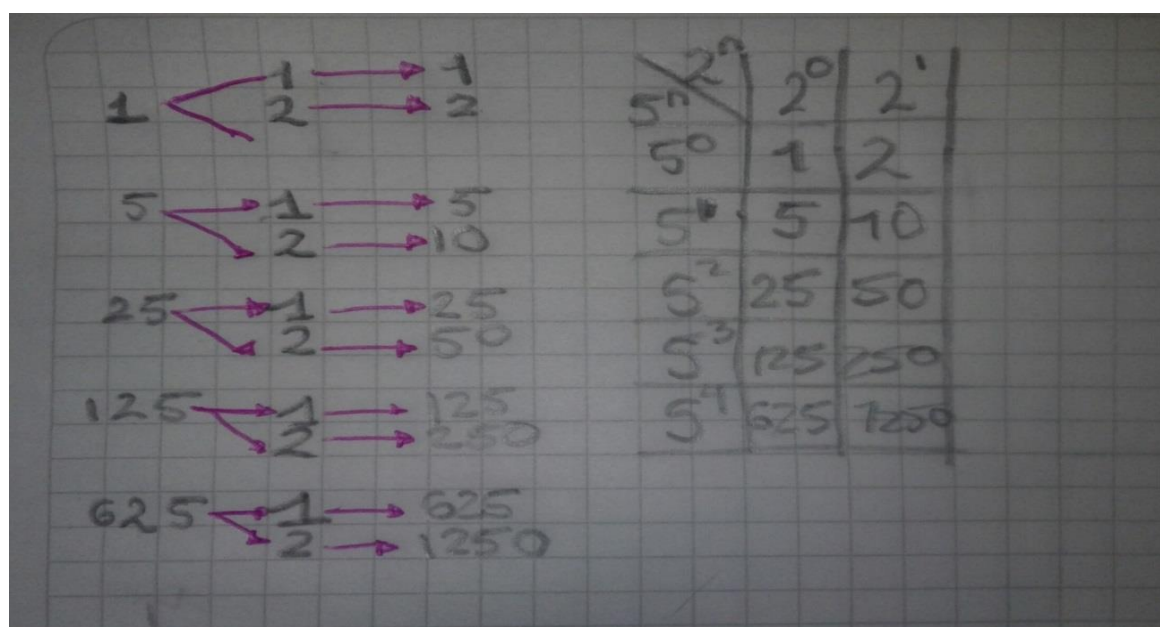 1 1 → 1
2 → 2
5 1 → 5
2 → 10
25 1 → 25
2 → 50
125 1 → 125
2 → 250
625 1 → 625
2 → 1250
2ⁿ 2⁰ 2¹
5ⁿ
5⁰ 1 2
5¹ 5 10
5² 25 50
5³ 125 250
5⁴ 625 1250